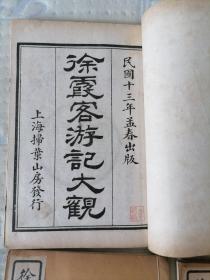 民國十三年孟春出版
徐霞客游記大觀
上海掃葉山房發行
徐